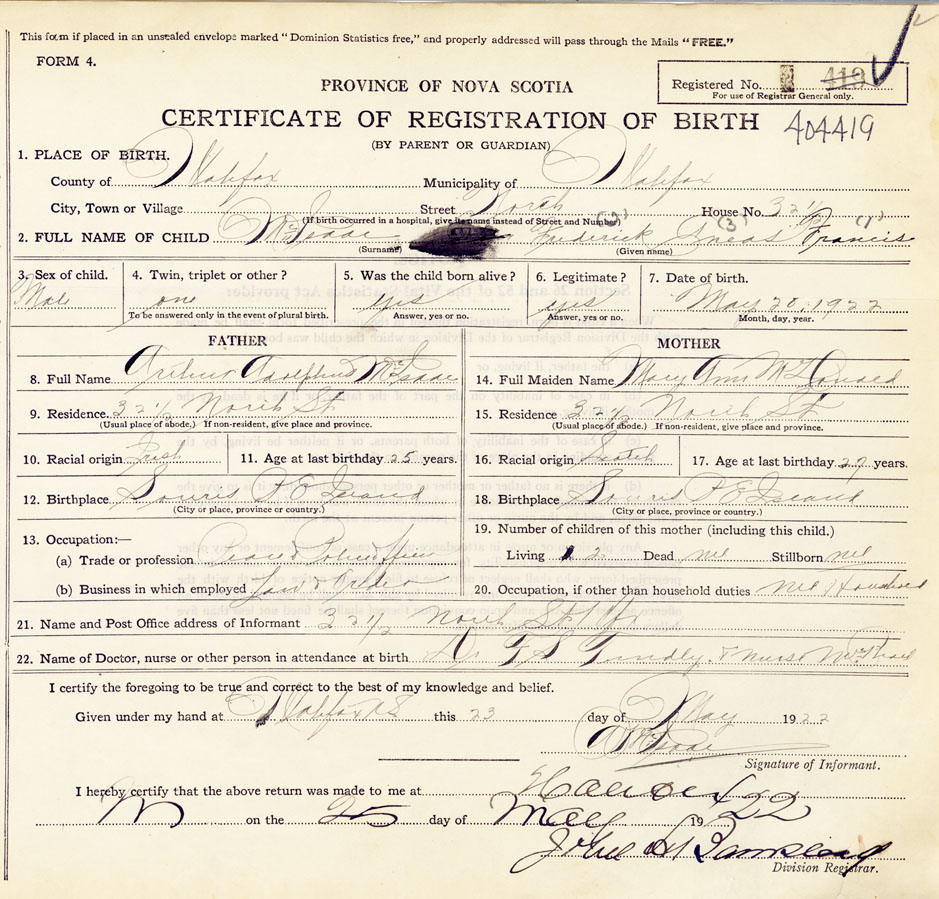 This form if placed in an unsealed envelope marked "Dominion Statistics free," and properly addressed will pass through the Mails "FREE."
FORM 4.
PROVINCE OF NOVA SCOTIA
Registered No. 418
For use of Registrar General only.
CERTIFICATE OF REGISTRATION OF BIRTH 404419
(BY PARENT OR GUARDIAN)
1. PLACE OF BIRTH.
County of Halifax Municipality of Halifax
City, Town or Village Street North House No. 32 1/2
(If birth occurred in a hospital, give its name instead of Street and Number) (2) (3) (1)
2. FULL NAME OF CHILD McIsaac Frederick Aneas Francis
(Surname) (Given name)
3. Sex of child. 4. Twin, triplet or other? 5. Was the child born alive? 6. Legitimate? 7. Date of birth.
Male one yes yes May 20, 1922
To be answered only in the event of plural birth. Answer, yes or no. Answer, yes or no. Month, day, year.
FATHER MOTHER
8. Full Name Arthur Adolphus McIsaac 14. Full Maiden Name Mary Ann McDonald
9. Residence. 32 1/2 North St. 15. Residence 32 1/2 North St.
(Usual place of abode.) If non-resident, give place and province. (Usual place of abode.) If non-resident, give place and province.
10. Racial origin Irish 11. Age at last birthday 25 years. 16. Racial origin Scotch 17. Age at last birthday 27 years.
12. Birthplace Souris P E Island 18. Birthplace Souris P E Island
(City or place, province or country.) (City or place, province or country.)
19. Number of children of this mother (including this child.)
13. Occupation:—
(a) Trade or profession Police Officer Living 2 Dead nil Stillborn nil
(b) Business in which employed Law & Order 20. Occupation, if other than household duties nil Household
21. Name and Post Office address of Informant 32 1/2 North St Hfx
22. Name of Doctor, nurse or other person in attendance at birth Dr & Nurse
I certify the foregoing to be true and correct to the best of my knowledge and belief.
Given under my hand at Halifax N S this 23 day of May 1922
A McIsaac
Signature of Informant.
I hereby certify that the above return was made to me at Halifax
on the 25 day of May 1922
John
Division Registrar.